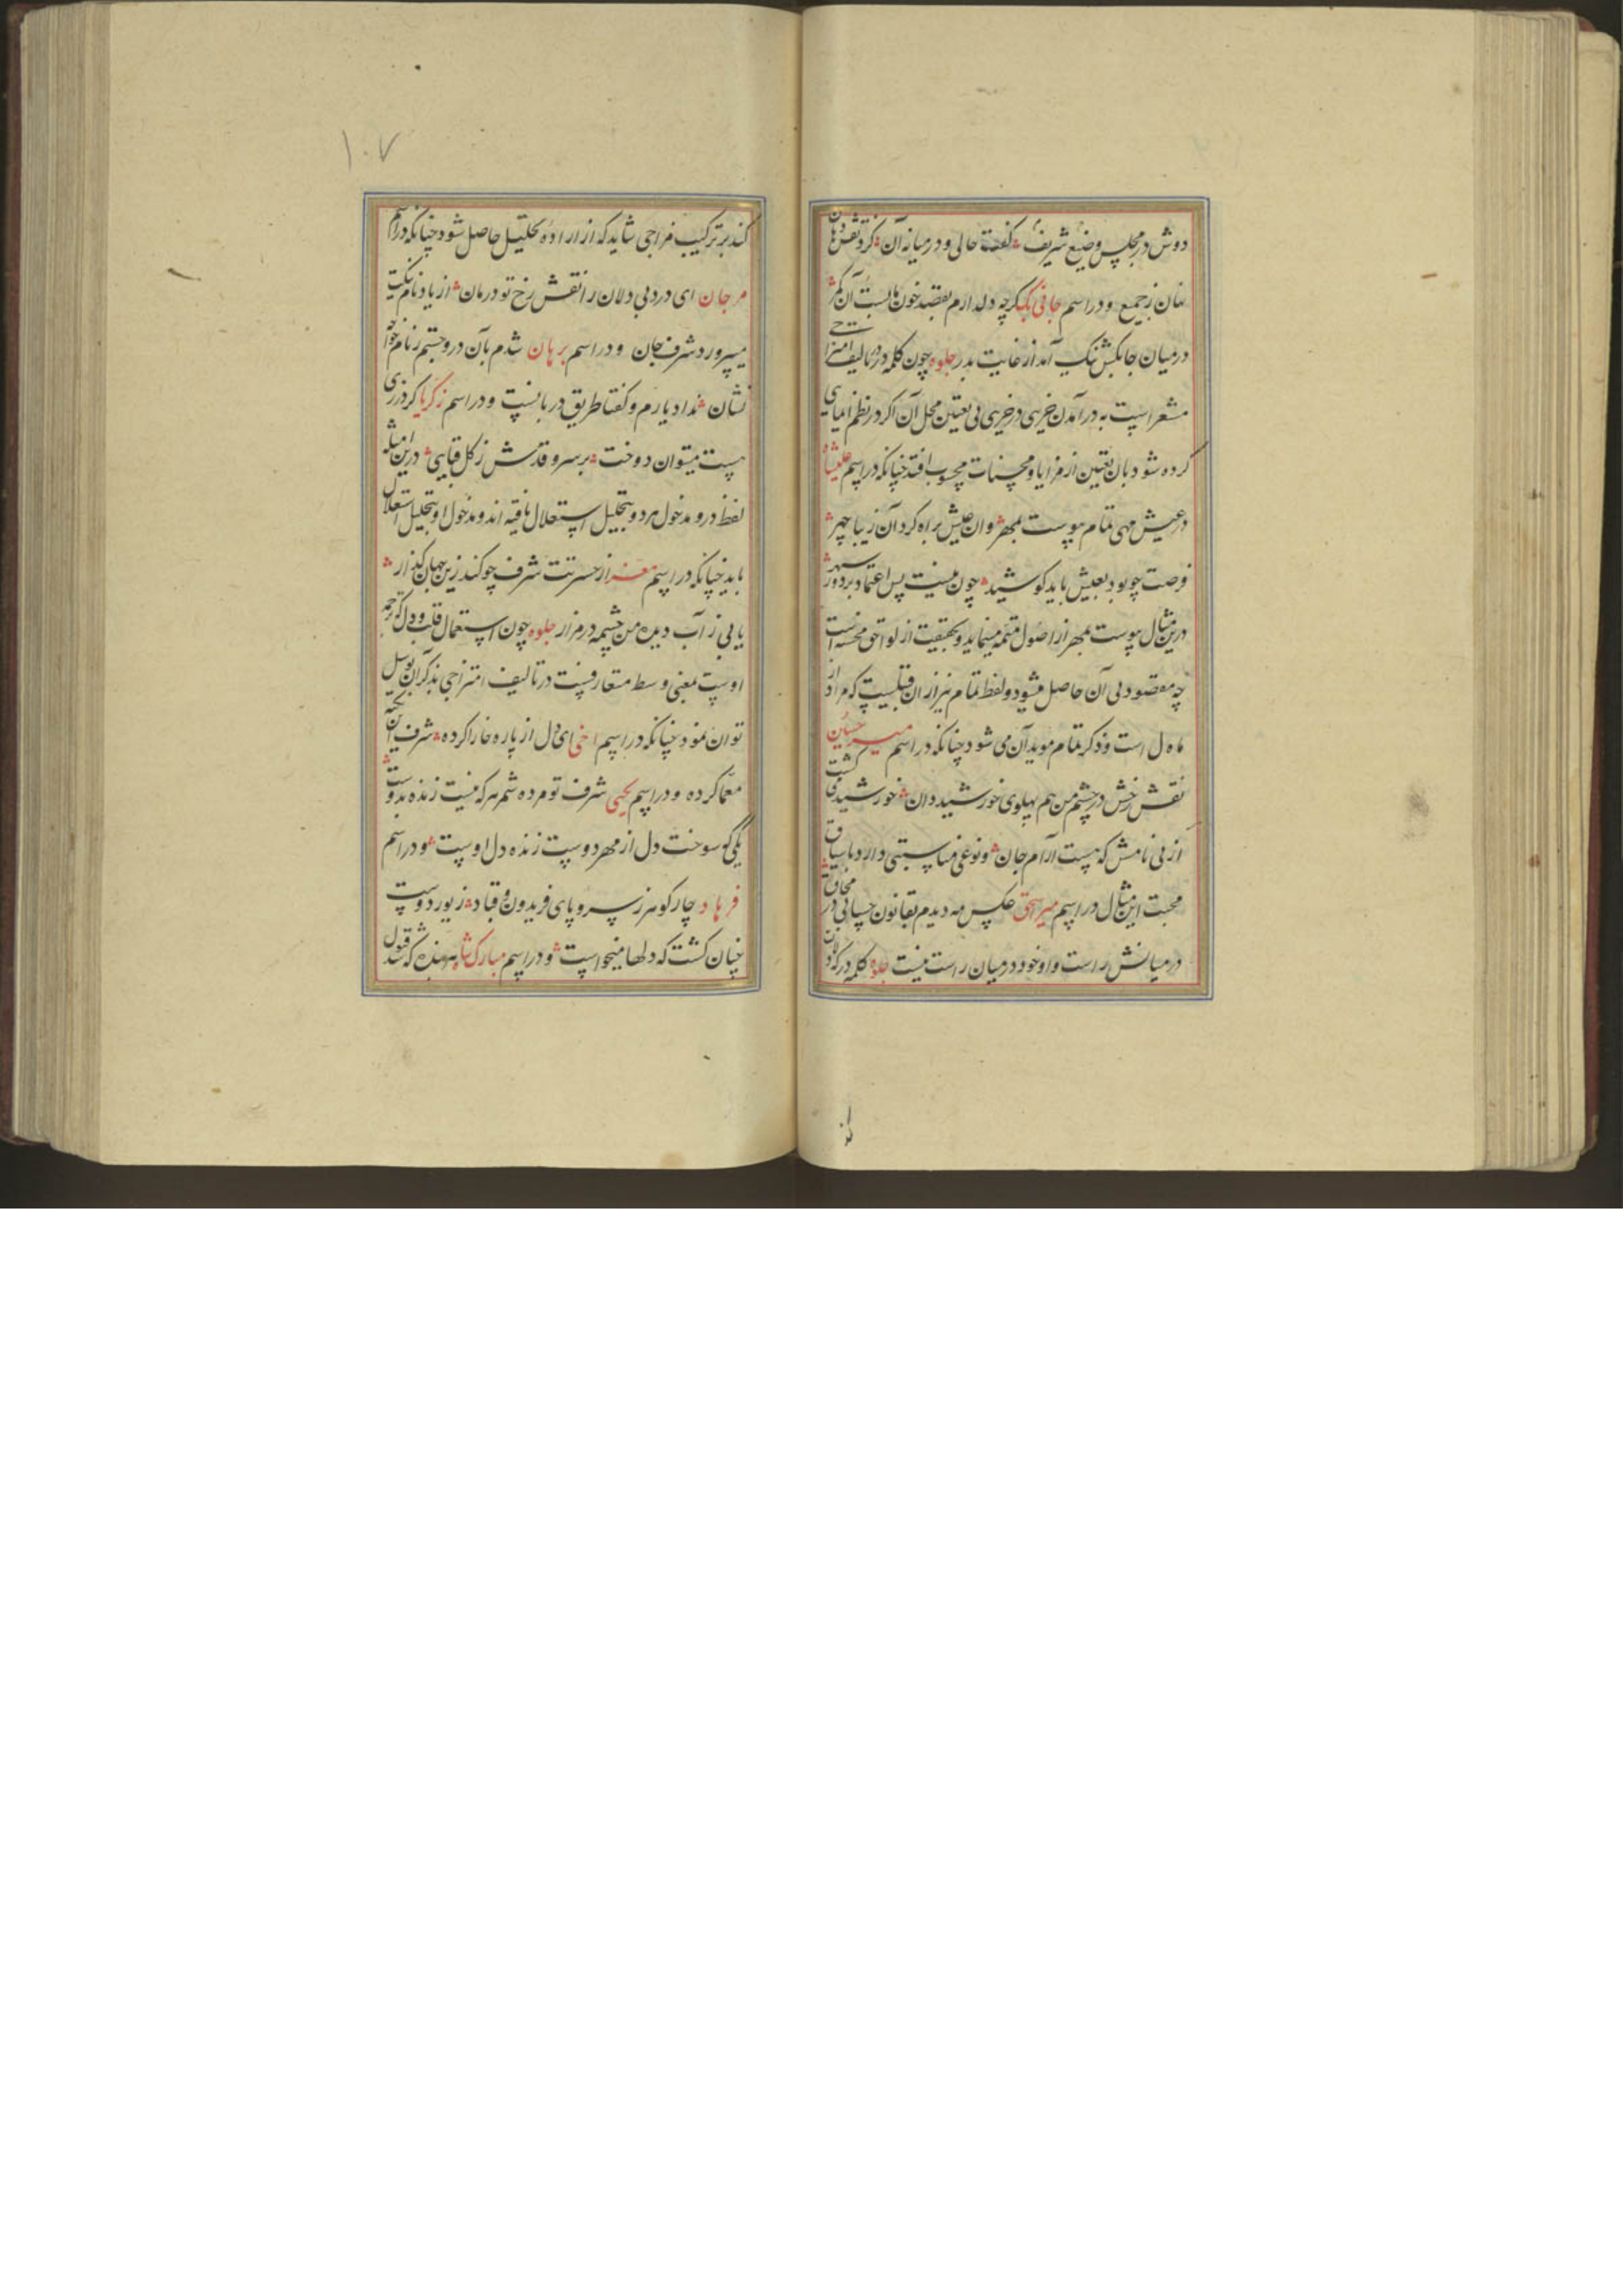 دوش در مجلس وضیع شریف گفت حالی و در میانه آن کرد نقش دهان
نهان ز جمع و در اسم جانی بک کرچه دلدارم بقصد خونها بست آن کمر
در میان جا بکش نیک آمد از غایت بدر جلوه چون کلمه در در تالیف امتزاجی
مشعر است به در آمدن خیری در خیری بی تعیین محل آن اکر در نظم ایمایی
کرده شود بان تعیین از مزایا و محسنات محسوب افتد چنانکه در اسم علیشاه
در عیش مهی تمام پیوست بمهر وان عیش براه کرد آن زیبا چهر
فرصت چو بود بعیش باید کوشید چون نیست پس اعتماد بر دور سپهر
درین مثال پیوست بمهر از اصول متممه مینماید و بحقیقت از لواحق محسنه است
چه مقصود بی آن حاصل میشود و لفظ تمام نیز از ان قبلیست که مراد از
ماه ل است و ذکر تمام موید آن می شود چنانکه در اسم میر حسین
نقش رخش در چشم من هم پهلوی خورشید دان خورشید فی کشت
از بی نامش که هست آرام جان و نوعی مناسبتی دارد با سیاق
محبت این مثال در اسم میر اسحق عکس مه دیدم بقانون حسابی در محاق
در میانش راست و او خود در میان راست نیست جلوه کلمه در که دلالت
۱۰۷
کند بر ترکیب مزاجی شاید که از اراده تحلیل حاصل شود چنانکه در اسم
مرجان ای درد بی دلان را نقش رخ تو درمان از یاد نام نیکت
میپرورد شرف جان و در اسم برهان شدم بآن در و جستم ز نام خواجه
نشان نداد یارم و کفتا طریق دربانست و در اسم زکریا کر درزی
هست میتوان دوخت بر سرو قدش ز کل قبایی درین امثله
لفظ در و مدخول هر دو بتحلیل استقلال یافته اند و مدخول او بتحلیل استقلال
یابد چنانکه در اسم معز از حسرتت شرف چو کند زین جهان کذار
یابی ز آب دیده من چشمه در مزار جلوه چون استعمال قلب و دل که ترجمه
اوست بمعنی وسط متعارفست در تالیف امتزاجی بذکر ان توسل
توان نمود چنانکه در اسم اخی ای دل از پاره خارا کرده شرف آن نکته
معما کرده و در اسم یحیی شرف تو مرده شمر هر که نیست زنده بدوست
یکی کو سوخت دل از مهر دوست زنده دل اوست و در اسم
فرهاد چار کوهر ز سر و پای فریدون و قباد زیور دوست
چنان کشت که دلها میخواست و در اسم مبارکشاه